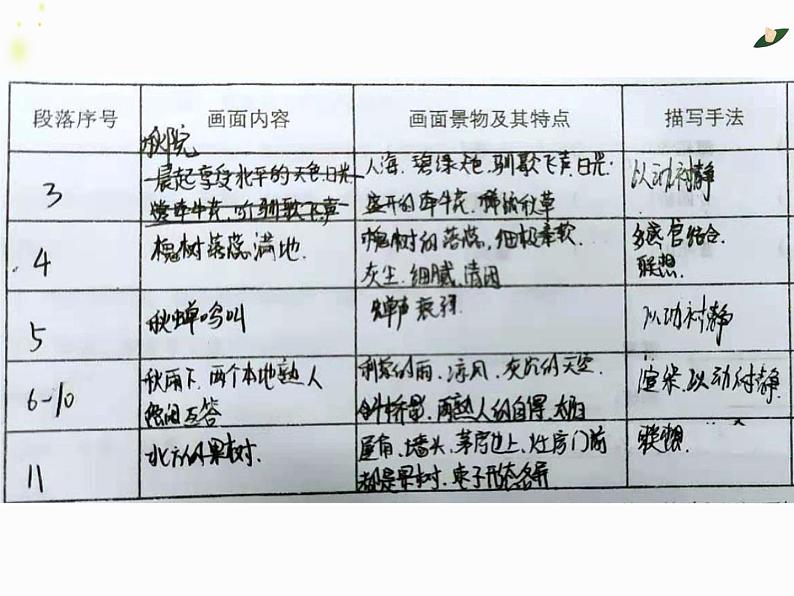 段落序号 画面内容 画面景物及其特点 描写手法
秋院
3 晨起享受北平的天色日光 人海、碧绿 驯歌飞声日光 以动衬静
牵牛花、听驯歌飞声 盛开的牵牛花、稀疏秋草
4 槐树落蕊满地. 槐树的落蕊,细极柔软、 多感官结合、
灰尘、细腻、清闲 联想.
5 秋蝉鸣叫 蝉声衰弱 以动衬静
6-10 秋雨下、两个本地熟人 的雨、凉风、灰沉的天空、 渲染、以动衬静.
问互答 斜桥影、两熟人的自得、
11 北方的果树. 屋角、墙头、茅房边上、灶房门前 联想.
都是果树、枣子形态名